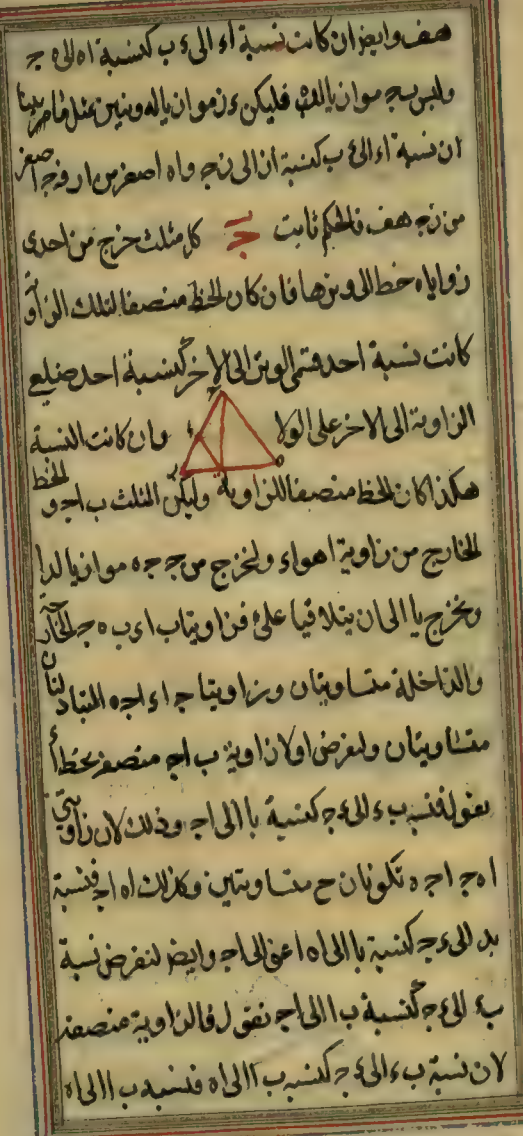 هف وايض ان كانت نسبة اء الى ء ب كنسبة اه الى ه ج
وليس ب ج موازيا فليكن ء ز موازيا له ونبين بمثل ما مر
ان نسبة اء الى ء ب كنسبة از الى ز ج واه اصغر من از و ه ج اصغر
من ز ج هف فالحكم ثابت ج كل مثلث خرج من احدى
زواياه خط الى وترها فان كان الخط منصفا لتلك الزاوية
كانت نسبة احد قسمى الوتر الى الاخر كنسبة احد ضلعى
الزاوية الى الاخر على الولا وان كانت النسبة
هكذا كان الخط منصفا للزاوية وليكن المثلث ب ا ج و الخط
الخارج من زاوية ا هو اء ولنخرج من ج ج ه موازيا لدا
ونخرج ب ا الى ان يتلاقيا على ه فزاويتا ب اء ب ه ج الخارجة
والداخلة متساويتان وزاويتا ج اء ا ج ه المتبادلتان
متساويتان ولنفرض اولا زاوية ب ا ج منصفة بخط اء
نقول فنسبة ب ء الى ء ج كنسبة ب ا الى ا ج وذلك لان زاويتى
ا ه ج ا ج ه تكونان ح متساويتين وكذلك ا ه ا ج فنسبة
ب د الى ء ج كنسبة ب ا الى ا ه اعنى الى ا ج وايض لنفرض نسبة
ب ء الى ء ج كنسبة ب ا الى ا ج نقول فالزاوية منصفة
لان نسبة ب ء الى ء ج كنسبة ب ا الى ا ه فنسبة ب ا الى ا ه